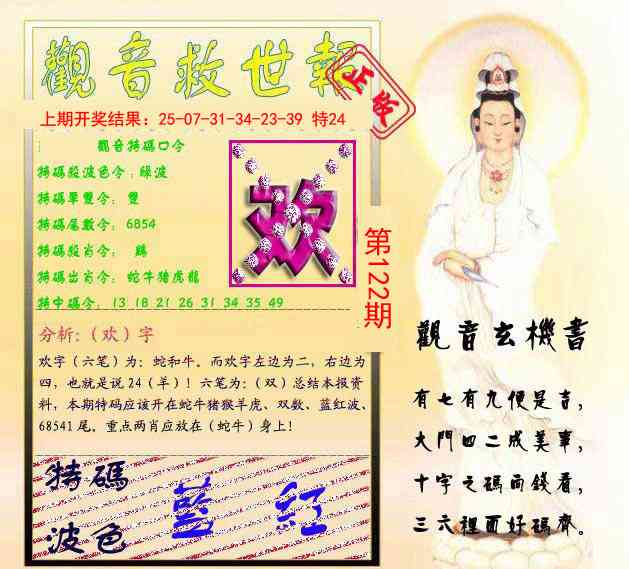 觀音救世報
正版
上期开奖结果：25-07-31-34-23-39 特24
觀音特碼口令
特碼殺波色令：綠波
特碼單雙令： 雙
特碼尾數令： 6854
特碼殺肖令： 鷄
特碼出肖令： 蛇牛猪虎龍
特中碼令： 13 18 21 26 31 34 35 49
欢
第122期
分析:（欢）字
欢字（六笔）为：蛇和牛。而欢字左边为二，右边为
四，也就是说 24（羊）！六笔为：（双）总结本报资
料，本期特码应该开在蛇牛猪猴羊虎、双数、蓝红波、
68541 尾。重点两肖应放在（蛇牛）身上！
特碼
波色
藍 紅
觀音玄機書
有七有九便是吉，
大門四二成美事，
十字之碼向錢看，
三六裡面好碼齊。